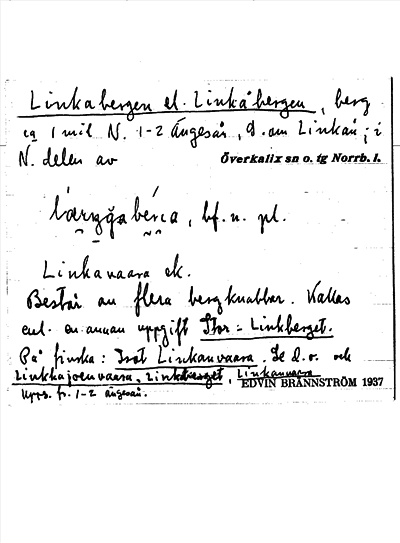 Linkabergen el. Linkåbergen, berg
ca 1 mil N. 1-2 Ängesån, O. om Linkån; i
N. delen av Överkalix sn o. tg Norrb. l.
bf. n. pl.
Linkavaara ek.
Består av flera bergknabbar. Kallas
enl. en annan uppgift Stor-Linkberget.
På finska: Isot Linkanvaara. Se d. o. och
Linkkajoenvaara, Linkåberget, Linkanvaara
EDVIN BRÄNNSTRÖM 1937
Upps. fr. 1-2 Ängesån.